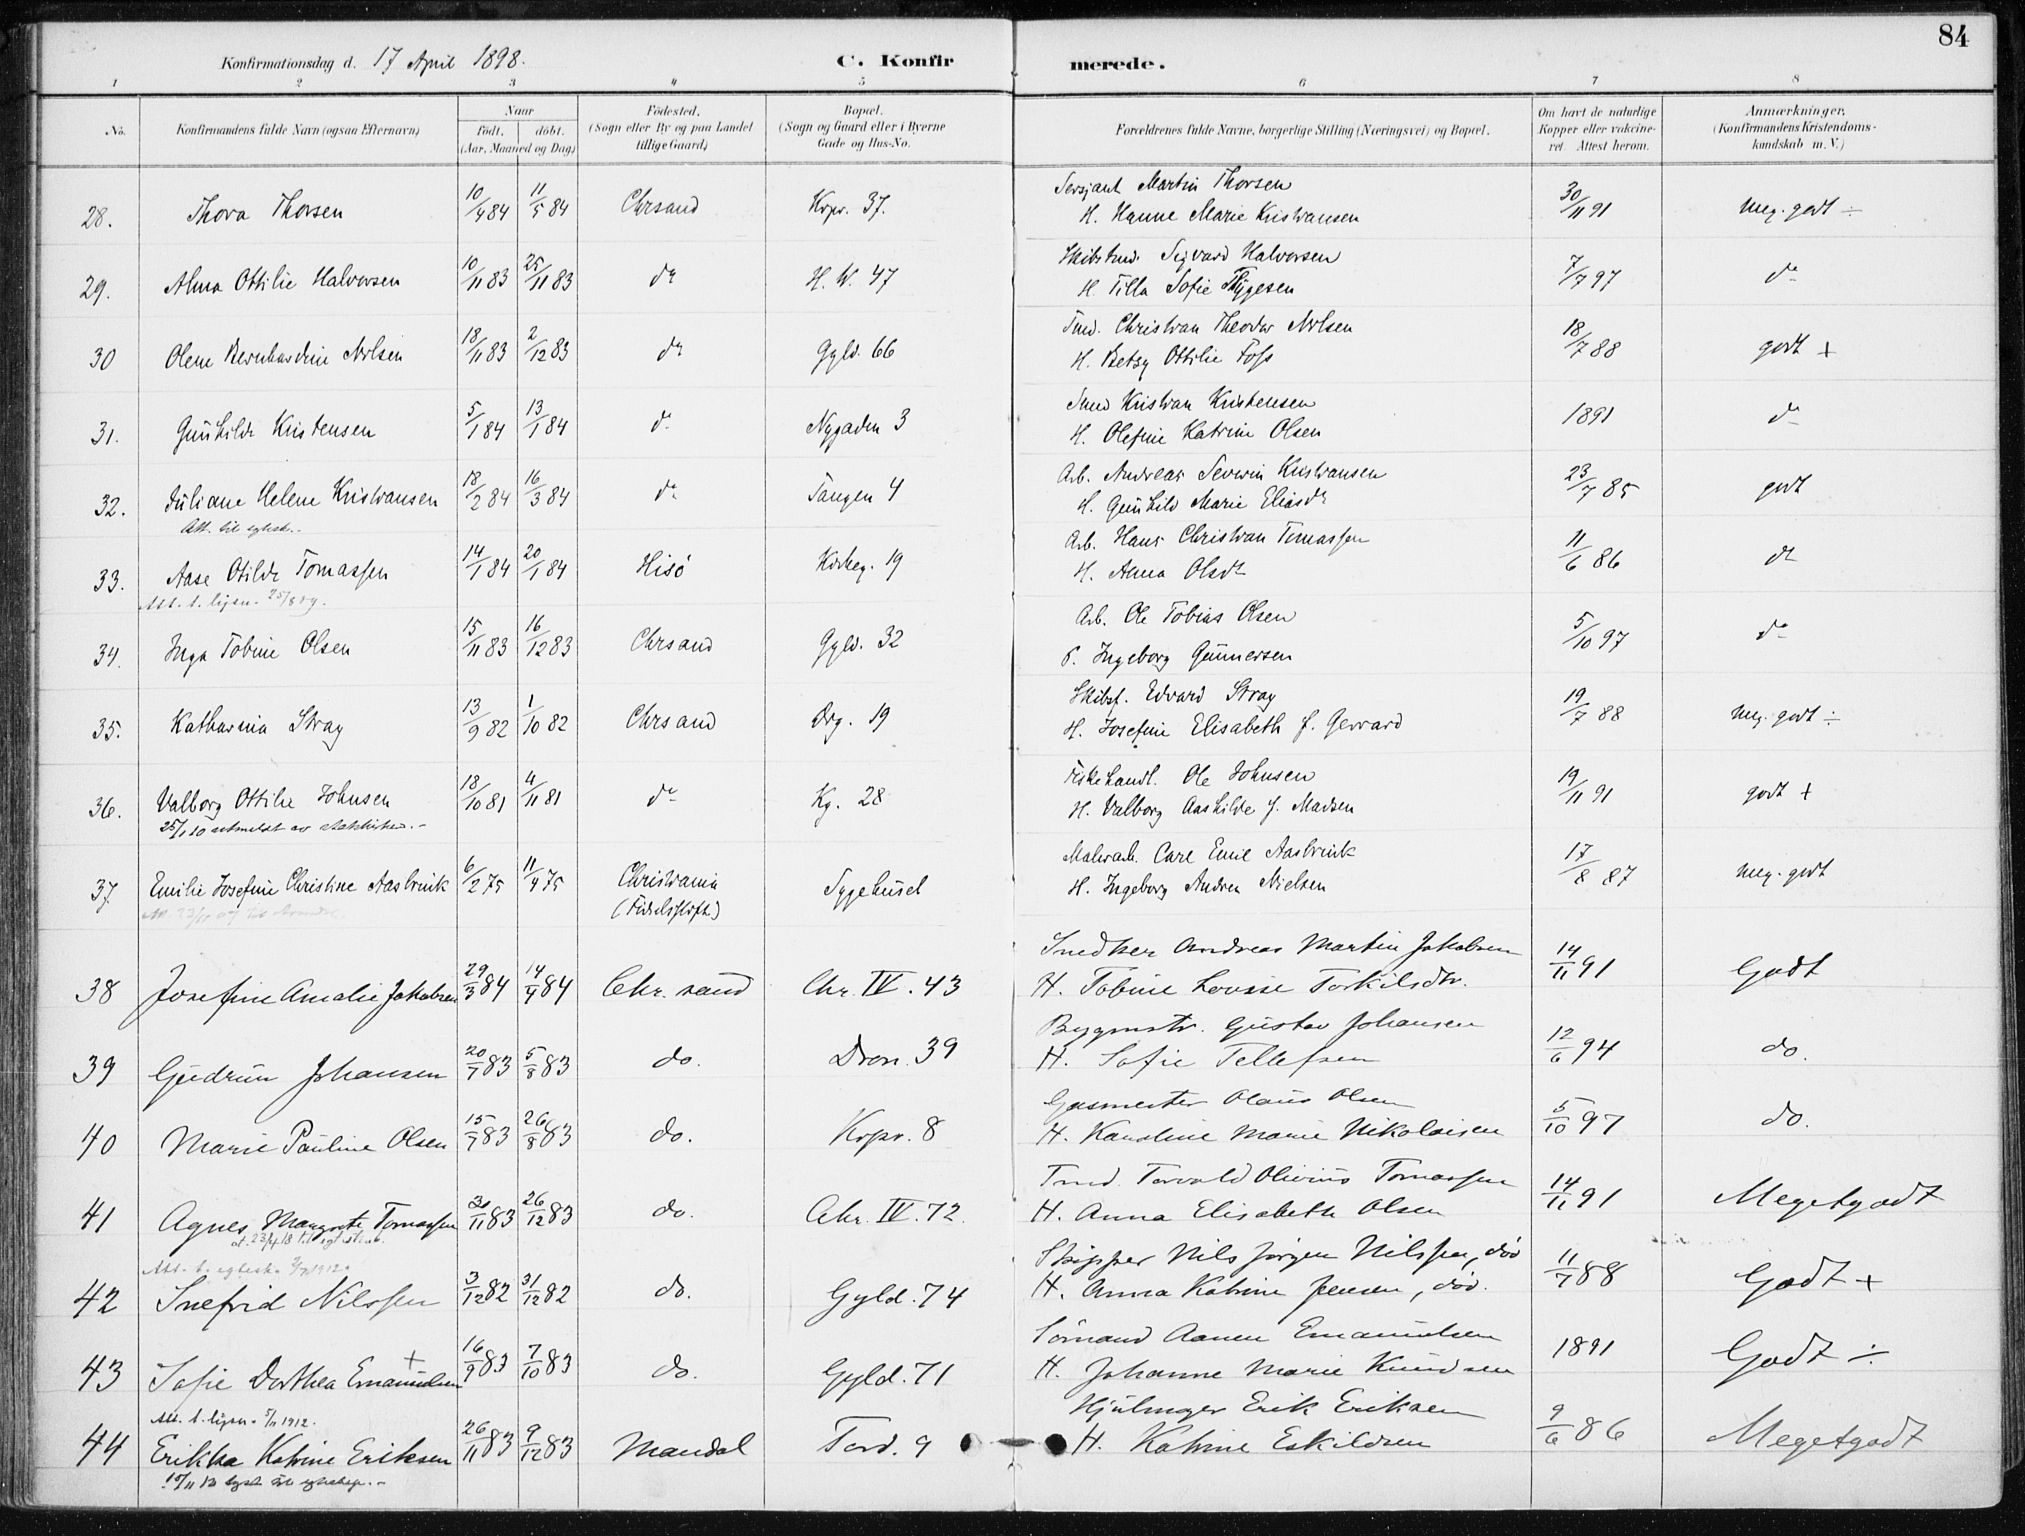 84
Konfirmationsdag d. 17 April 1898.
C. Konfirmerede.
1 2 3 4 5 6 7 8
No.
Konfirmandens fulde Navn (ogsaa Efternavn)
Naar
født. døbt.
(Aar, Maaned og Dag)
Fødested.
(Sogn eller By og paa Landet
tillige Gaard)
Bopæl.
(Sogn og Gaard eller i Byerne
Gade og Hus-No.
Forældrenes fulde Navne, borgerlige Stilling (Næringsvei) og Bopæl.
Om havt de naturlige
Kopper eller vakcine-
ret. Attest herom.
Anmærkninger.
(Konfirmandens Kristendoms-
kundskab m. V.)
28. Thora Thorsen 10/4 84 11/5 84 Chrsand Krpr. 37. Sersjant Martin Thorsen 30/11 91 Meg. godt ÷
H. Hanne Marie Kristiansen
29. Alma Ottilie Halvorsen 10/11 83 25/11 83 do H. W. 47 Skibstmd. Sigvard Halvorsen 7/7 97 do
H. Tilla Sofie Thygesen
30 Olene Bernhardine Nilsen 18/11 83 2/12 83 do Gyld. 66 Tmd. Christian Theodor Nilsen 18/7 88 godt +
H. Betsy Ottilie Foss
31. Gunhilde Kristensen 5/1 84 13/1 84 do Nygaden 3 Smed Kristian Kristensen 1891 do
H. Olefine Katrine Olsen
32. Juliane Helene Kristiansen 18/2 84 16/3 84 do Tangen 4 Arb. Andreas Severin Kristiansen 23/7 85 godt
Att. til egtesk.. H. Gunhild Marie Eliasdr
33. Aase Otilde Tomassen 14/1 84 20/1 84 Hisö Kirkeg. 19 Arb. Hans Christian Tomassen 11/6 86 do
Att. t. lysn. 25/8 09. H. Anna Olsdr
34. Inga Tobine Olsen 15/11 83 16/12 83 Chrsand Gyld. 32 Arb. Ole Tobias Olsen 5/10 97 do
P. Ingeborg Gunnersen
35. Katharina Stray 13/9 82 1/10 82 Chrsand Drg. 19 Skibsf. Edvard Stray 19/7 88 Meg. godt ÷
H. Josefine Elisabeth f. Gerrard
36. Valborg Ottilie Johnsen 18/10 81 4/11 81 do Kg. 28 Fiskehandl. Ole Johnsen 19/11 91 godt +
25/1 10 utmeldt av statskirken.- H. Valborg Aashilde f. Madsen
37. Emilie Josefine Christine Aasbrink 6/2 75 11/4 75 Christiania Sygehuset Malerarb. Carl Emil Aasbrink 17/8 87 Meg. godt
(Födselsstift.) H. Ingeborg Andrea Nielsen
38 Josefine Amalie Jakobsen 29/3 84 14/4 84 Chr.sand Chr. IV. 43 Snedker Andreas Martin Jakobsen 14/11 91 Godt
H. Tobine Lovise Torkilsdtr.
39 Gudrun Johansen 20/7 83 5/8 83 do. Dron. 39 Bygmstr. Gustav Johansen 12/6 94 do.
H. Sofie Tellefsen
40 Marie Pauline Olsen 15/7 83 26/8 83 do. Krpr. 8 Gasmester Olaus Olsen 5/10 97 do.
H. Karoline Marie Nikolaisen
41 Agnes Margrete Tomassen 30/11 83 26/12 83 do. Chr. IV. 72. Tmd. Torvald Olivius Tomassen 14/11 91 Megetgodt
at. 23/4 18 til egtesk. H. Anna Elisabeth Olsen
Att. t. egtesk. 1912.
42 Snefrid Nilssen 3/12 82 31/12 82 do. Gyld. 74 Skipper Nils Jörgen Nilssen, död 11/7 88 Godt +
H. Anna Katrine Jensen, död.
43 Sofie Dorthea Emanuelsen + 16/9 83 7/10 83 do. Gyld. 71 Sömand Aanen Emanuelsen 1891 Godt ÷
H. Johanne Marie Knudsen
Att. t. lysn. 5/11 1912.
44 Erikka Katrine Eriksen 26/11 83 9/12 83 Mandal Tord. 9 Hjulmager Erik Eriksen 9/6 86 Megetgodt
lyst til egteskap.- H. Katrine Eskildsen